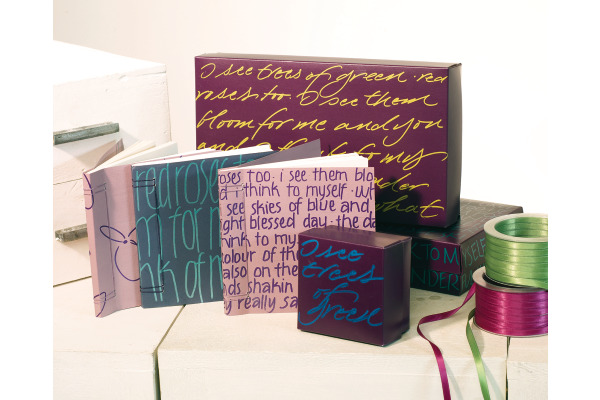 I see trees of green · red
roses too. I see them
bloom for me and you
and to my
what
red rose
m for m
nk of m
oses too. i see them blo
d i think to myself · wh
see skies of blue and
ght blessed day · the da
hink to my
colour of the
also on the
nds shakin
y really sa
I see
trees
of
green
TO MYSELF
NDER